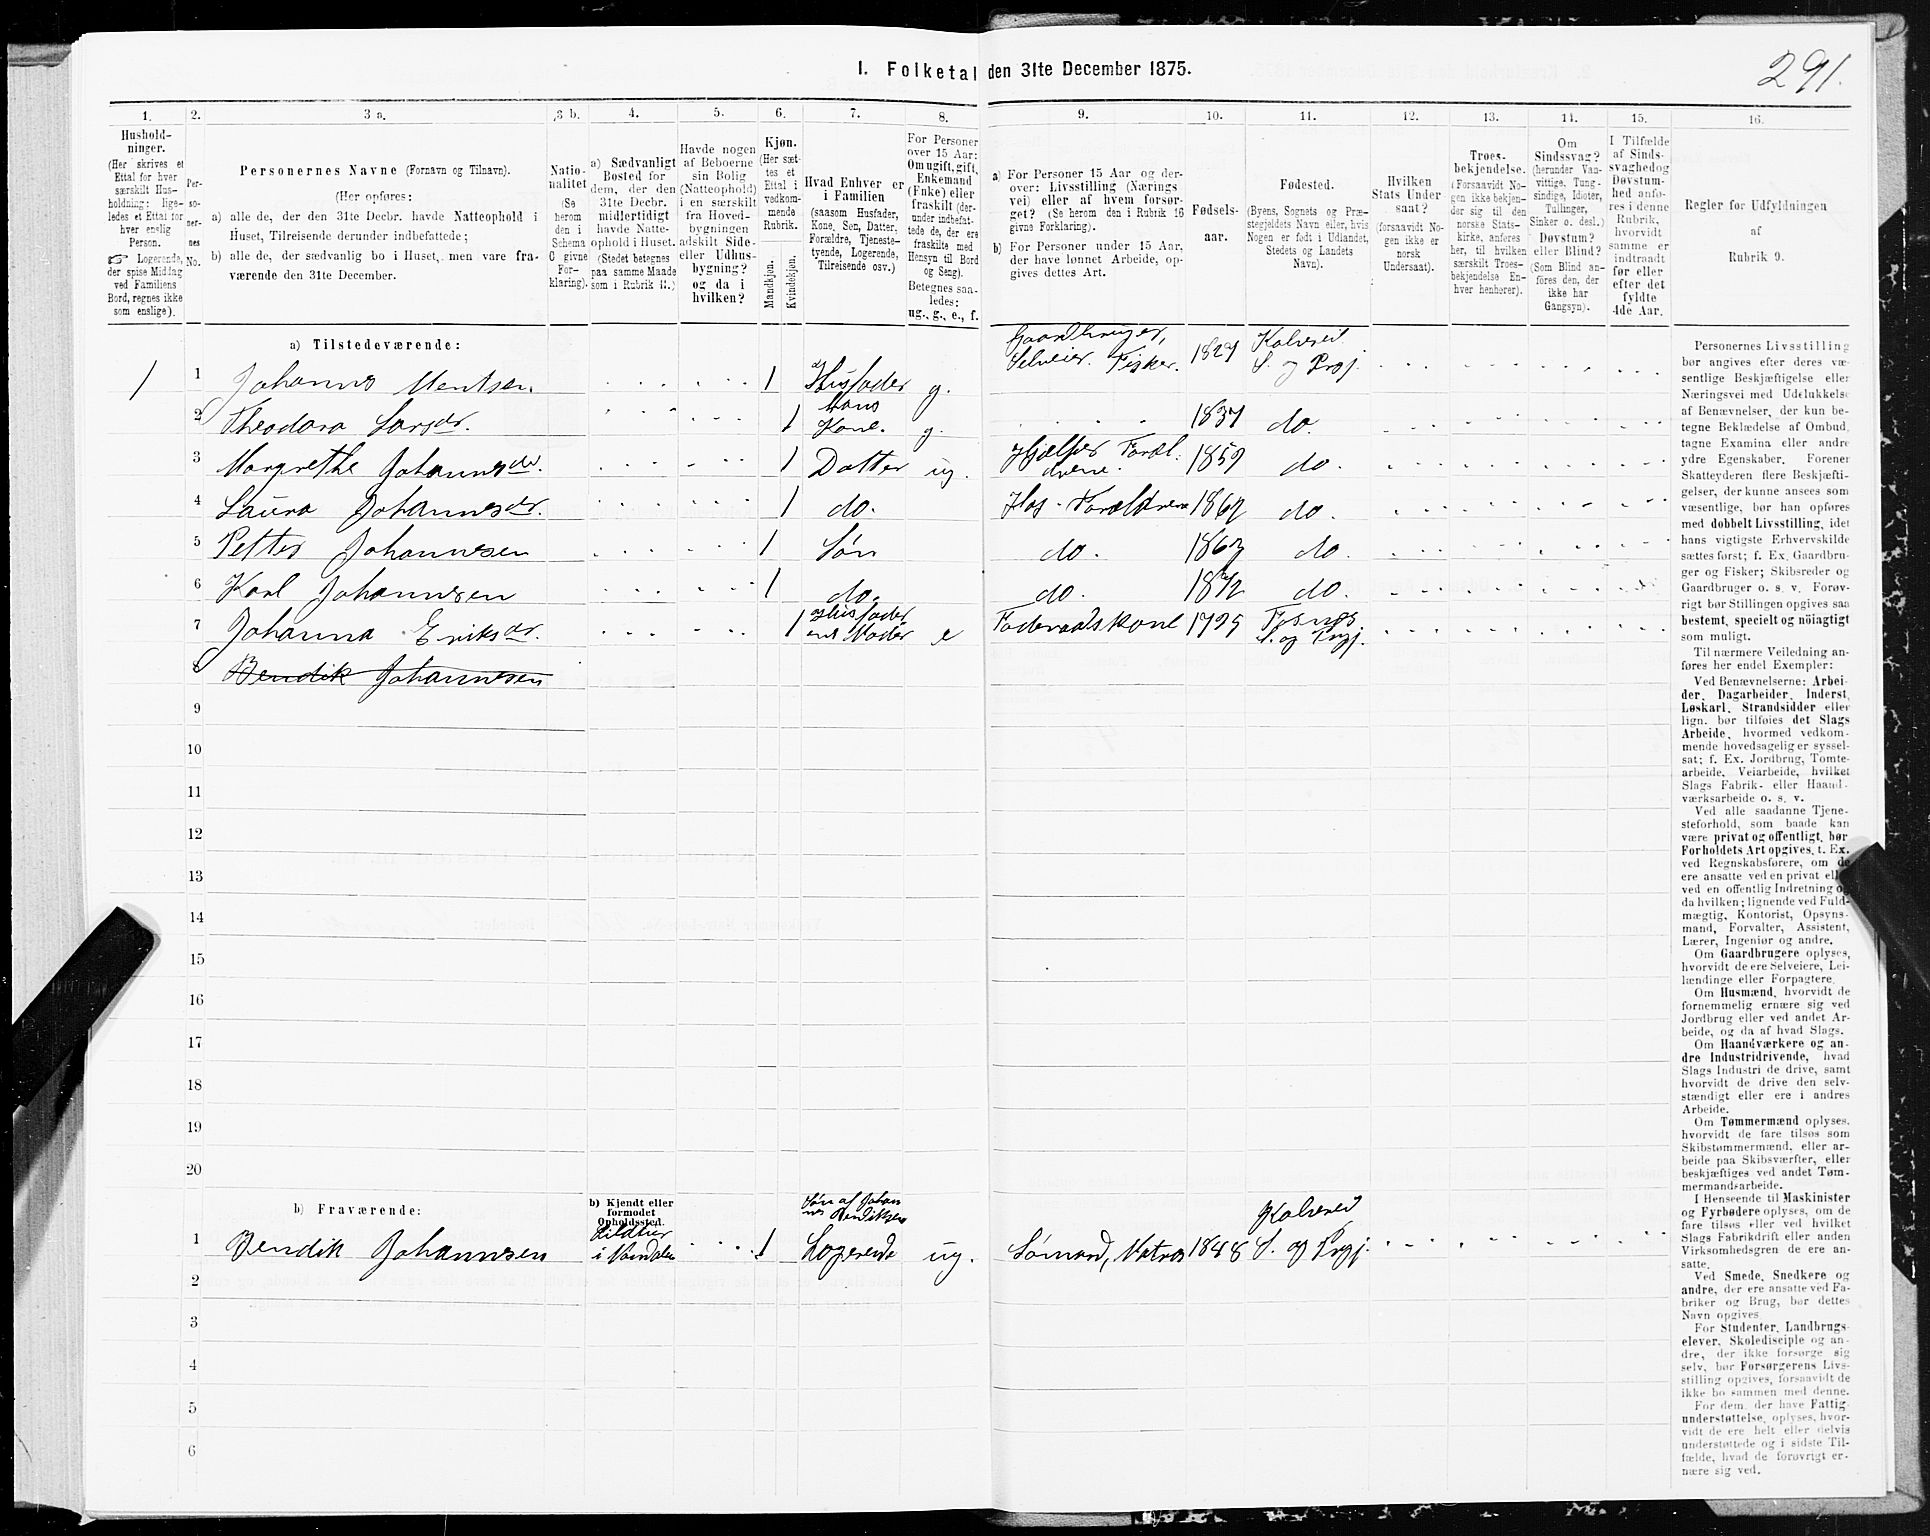 I. Folketal den 31te December 1875.
291.
1. 2. 3 a. 3 b. 4. 5. 6. 7. 8. 9. 10. 11. 12. 13. 14. 15. 16.
Hushold-
ninger.
(Her skrives et
Ettal for hver
særskilt Hus-
holdning; lige-
ledes et Ettal for
hver enslig
Person.
☞ Logerende,
der spise Middag
ved Familiens
Bord, regnes ikke
som enslige).
Per-
so-
ner-
nes
No.
Personernes Navne (Fornavn og Tilnavn).
(Her opføres:
a) alle de, der den 31te Decbr. havde Natteophold i
Huset, Tilreisende derunder indbefattede;
b) alle de, der sædvanlig bo i Huset, men vare fra-
værende den 31te December.
Natio-
nalitet
(Se
herom
den i
Schema
C givne
For-
klaring).
a) Sædvanligt
Bosted for
dem, der den
31te Decbr.
midlertidigt
havde Natte-
ophold i Huset.
(Stedet betegnes
paa samme Maade
som i Rubrik 11.)
Havde nogen
af Beboerne
sin Bolig
(Natteophold)
i en særskilt
fra Hoved-
bygningen
adskilt Side-
eller Udhus-
bygning?
og da i
hvilken?
Kjøn.
(Her sæt-
tes et
Ettal i
vedkom-
mende
Rubrik.
Mandkjøn.
Kvindekjøn.
Hvad Enhver er
i Familien
(saasom Husfader,
Kone, Søn, Datter,
Forældre, Tjeneste-
tyende, Logerende,
Tilreisende osv.)
For Personer
over 15 Aar:
Om ugift, gift,
Enkemand
(Enke) eller
fraskilt (der-
under indbefat-
tede de, der ere
fraskilte med
Hensyn til Bord
og Seng).
Betegnes saa-
ledes:
ug., g., e., f.
a) For Personer 15 Aar og der-
over: Livsstilling (Nærings
vei) eller af hvem forsør-
get? (Se herom den i Rubrik 16
givne Forklaring).
b) For Personer under 15 Aar.
der have lønnet Arbeide, op-
gives dettes Art.
Fødsels-
aar.
Fødested.
(Byens, Sognets og Præ-
stegjeldets Navn eller, hvis
Nogen er født i Udlandet,
Stedets og Landets
Navn).
Hvilken
Stats Under
saat?
(forsaavidt No-
gen ikke er
norsk
Undersaat).
Troes-
bekjendelse.
(Forsaavidt No-
gen ikke bekjen-
der sig til den
norske Stats-
kirke, anføres
her, til hvilken
særskilt Troes-
bekjendelse En-
hver henhører).
Om
Sindssvag?
(herunder Van-
vittige, Tung-
sindige, Idioter,
Tullinger,
Sinker o. desl.)
Døvstum?
eller Blind?
(Som Blind an-
føres den, der
ikke har
Gangsyn).
I Tilfælde
af Sinds-
svaghed og
Døvstum-
hed anfø-
res i denne
Rubrik,
hvorvidt
samme er
indtraadt
før eller
efter det
fyldte
4de Aar.
Regler for Udfyldningen
af
Rubrik 9.
a) Tilstedeværende:
1 1 Johannes Mentsen. 1 Husfader g. Gaardbruger, Selveier. Fisker. 1827 Kolvereid S. og Prgj.
2 Theodora Larsdr. 1 hans Kone. g. 1837 do.
3 Margrethe Johannesdr. 1 Datter ug. Hjælper Foræl-drene. 1859 do.
4 Laura Johannesdr. 1 do. Hos Forældrene do.
5 Petter Johannesen 1 Søn do. do.
6 Karl Johannesen 1 do. do. 1872 do.
7 Johanna Eriksdr. 1 Husfader ens Moder e Føderaadskone 1799 Fosnes S. og Prgj.
8 Bendik Johannesen
9
10
11
12
13
14
15
16
17
18
19
20
b) Fraværende:
b) Kjendt eller
formodet
Opholdssted.
1 Bendik Johannesen Sildtur i Namdalen 1 Søn af Johannes Bendiksen Logerende ug. Sømand, Matros 1848 Kolvereid S. og Prgj.
2
3
4
5
6
Personernes Livsstilling
bør angives efter deres væ-
sentlige Beskjæftigelse eller
Næringsvei med Udelukkelse
af Benævnelser, der kun be-
tegne Beklædelse af Ombud,
tagne Examina eller andre
ydre Egenskaber. Forener
Skatteyderen flere Beskjæfti-
gelser, der kunne ansees som
væsentlige, bør han opføres
med dobbelt Livsstilling, idet
hans vigtigste Erhvervskilde
sættes først; f. Ex. Gaardbru-
ger og Fisker; Skibsreder og
Gaardbruger o. s. v. Forøv-
rigt bør Stillingen opgives saa
bestemt, specielt og nöiagtigt
som muligt.
Til nærmere Veiledning an-
føres her endel Exempler:
Ved Benævnelserne: Arbei-
der, Dagarbeider, Inderst,
Løskarl, Strandsidder eller
lign. bør tilføies det Slags
Arbeide, hvormed vedkom-
mende hovedsagelig er syssel-
sat; f. Ex. Jordbrug, Tomte-
arbeide, Veiarbeide, hvilket
Slags Fabrik- eller Haand-
værksarbeide o. s. v.
Ved alle saadanne Tjene-
steforhold, som baade kan
være privat og offentligt, bør
Forholdets Art opgives, t. Ex.
ved Regnskabsførere, om de
ere ansatte ved en privat eller
ved en offentlig Indretning og
da hvilken; lignende ved Fuld-
mægtig, Kontorist, Opsyns-
mand, Forvalter, Assistent,
Lærer, Ingeniør og andre.
Om Gaardbrugere oplyses,
hvorvidt de ere Selveiere, Lei-
lændinge eller Forpagtere.
Om Husmænd, hvorvidt de
fornemmelig ernære sig ved
Jordbrug eller ved andet Ar-
beide, og da af hvad Slags.
Om Haandværkere og an-
dre Industridrivende, hvad
Slags Industri de drive, samt
hvorvidt de drive den selv-
stændigt eller ere i andres
Arbeide.
Om Tømmermænd oplyses,
hvorvidt de fare tilsøs som
Skibstømmermænd, eller ar-
beide paa Skibsværfter, eller
beskjæftiges ved andet Tøm-
mermandsarbeide.
I Henseende til Maskinister
og Fyrbødere oplyses, om de
fare tilsøs eller ved hvilket
Slags Fabrikdrift eller anden
Virksomhedsgren de ere an-
satte.
Ved Smede, Snedkere og
andre, der ere ansatte ved Fa-
briker og Brug, bør dettes
Navn opgives.
For Studenter, Landbrugs-
elever, Skoledisciple og an-
dre, der ikke forsørge sig
selv, bør Forsørgerens Livs-
stilling opgives, forsaavidt de
ikke bo sammen med denne.
For dem, der have Fattig-
understøttelse, oplyses, hvor-
vidt de ere helt eller delvis
understøttede og i sidste Til-
fælde, hvad de forøvrigt er-
nære sig ved.